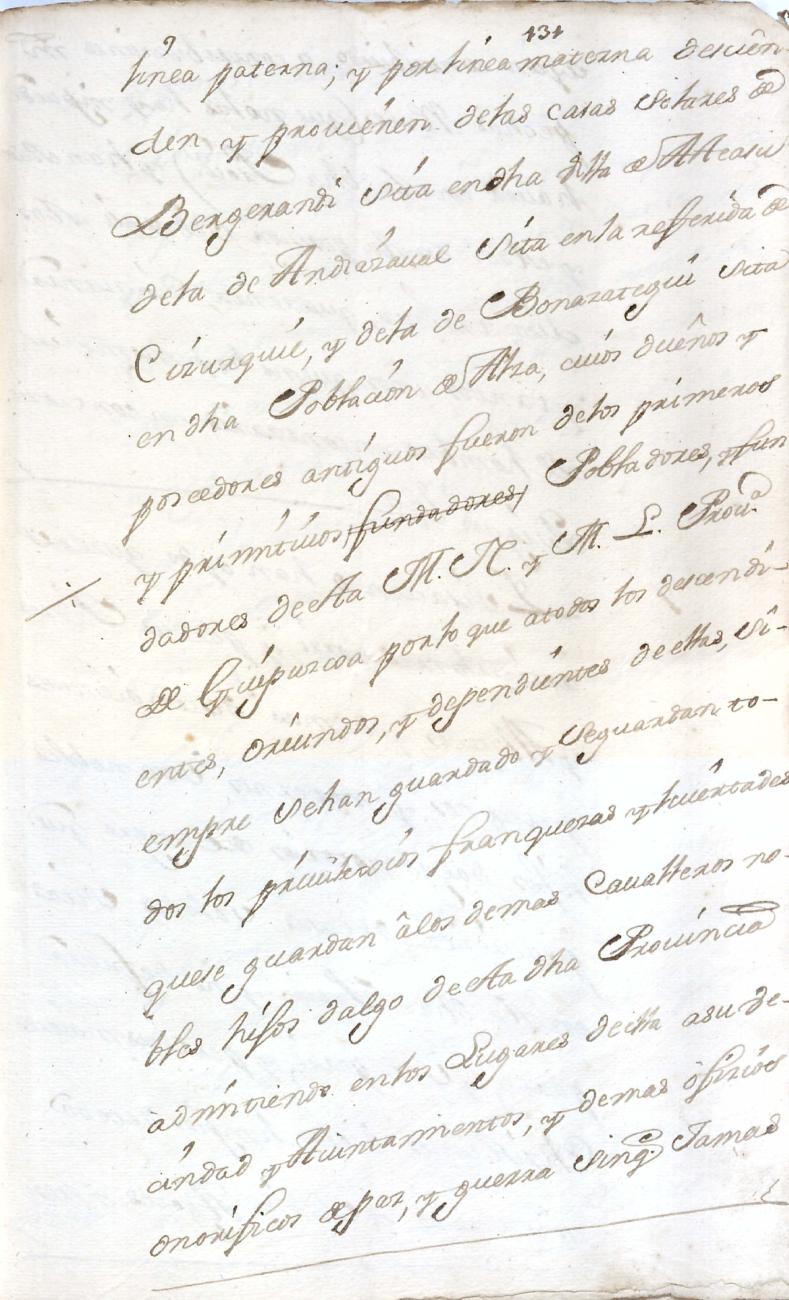 131
linea paterna; y por linea materna descien-
den y provienen delas casas solares de
Bergerandi sita en dha Vª de Atteasu
dela de Andiazaual sita en la refferida de
Cizurquil, y dela de Bonazategui sita
en dha Poblacion de Alza, cuios dueños y
poseedores antiguos fueron delos primeros
y primitiuos fundadores, Pobladores, y fun
dadores desta M. N. y M. L. Prouª
De Guipuzcoa por lo que atodos los descendi-
entes, oriundos, y dependientes deellas, si-
empre sehan guardado y seguardan to-
dos los priuilexios franquezas y liuertades
quese guardan âlos demas Caualleros no-
bles hijos dalgo desta dha Prouincia
admitiendo en los Lugares della asu de-
cindad y Aiuntamientos, y demas oficios
onorificos de paz, y guerra sinq.e Jamas